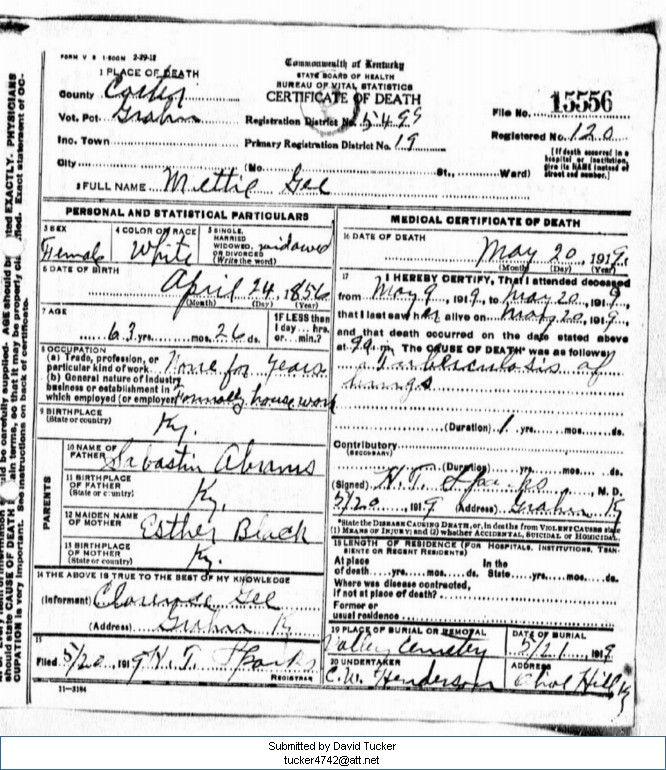 FORM V S 1-500M 2-29-12
Commonwealth of Kentucky
STATE BOARD OF HEALTH
BUREAU OF VITAL STATISTICS
CERTIFICATE OF DEATH
1 PLACE OF DEATH
County Carter
Vot. Pct Grahn
Inc. Town
City
Registration District No. 5499
Primary Registration District No. 19
File No. 15556
Registered No. 120
(No. St., Ward)
[If death occurred in a hospital or institution, give its NAME instead of street and number.]
2 FULL NAME Mettie Gee
PERSONAL AND STATISTICAL PARTICULARS
3 SEX
Female
4 COLOR OR RACE
White
5 SINGLE, MARRIED WIDOWED, OR DIVORCED
(Write the word)
widowed
6 DATE OF BIRTH
April 24, 1856
(Month) (Day) (Year)
7 AGE
63 yrs. mos. 26 ds.
If LESS than
1 day... hrs.
or... min.?
8 OCCUPATION
(a) Trade, profession, or
particular kind of work None for years
(b) General nature of industry
business or establishment in
which employed (or employer) Formally house work
9 BIRTHPLACE
(State or country)
Ky.
PARENTS
10 NAME OF
FATHER Sabastin Abrams
11 BIRTHPLACE
OF FATHER
(State or country)
Ky.
12 MAIDEN NAME
OF MOTHER Esther Black
13 BIRTHPLACE
OF MOTHER
(State or country)
Ky.
14 THE ABOVE IS TRUE TO THE BEST OF MY KNOWLEDGE
(Informant) Clarence Gee
(Address) Grahn Ky
15
Filed 5/20 1919 N. T. Sparks
REGISTRAR
11-3184
MEDICAL CERTIFICATE OF DEATH
16 DATE OF DEATH
May 20, 1919.
(Month) (Day) (Year)
17 I HEREBY CERTIFY, That I attended deceased
from May 9, 1919, to May 20, 1919
that I last saw her alive on May 20, 1919,
and that death occurred on the date stated above
at 9 a m. The CAUSE OF DEATH* was as follows:
Tuberculosis of
lungs
(Duration) 1 yrs. mos. ds.
Contributory
(SECONDARY)
(Duration) yrs. mos. ds.
(Signed) N. T. Sparks, M. D.
5/20, 1919 (Address) Grahn Ky
*State the DISEASE CAUSING DEATH, or, in deaths from VIOLENT CAUSES state
(1) MEANS OF INJURY; and (2) whether ACCIDENTAL, SUICIDAL or HOMICIDAL.
18 LENGTH OF RESIDENCE (FOR HOSPITALS, INSTITUTIONS, TRANSIENTS OR RECENT RESIDENTS)
At place of death yrs. mos. ds. In the State yrs. mos. ds.
Where was disease contracted,
if not at place of death?
Former or
usual residence
19 PLACE OF BURIAL OR REMOVAL
Valley Cemetery
DATE OF BURIAL
5/21 1919
20 UNDERTAKER
C. W. Henderson
ADDRESS
Olive Hill Ky
Submitted by David Tucker
tucker4742@att.net